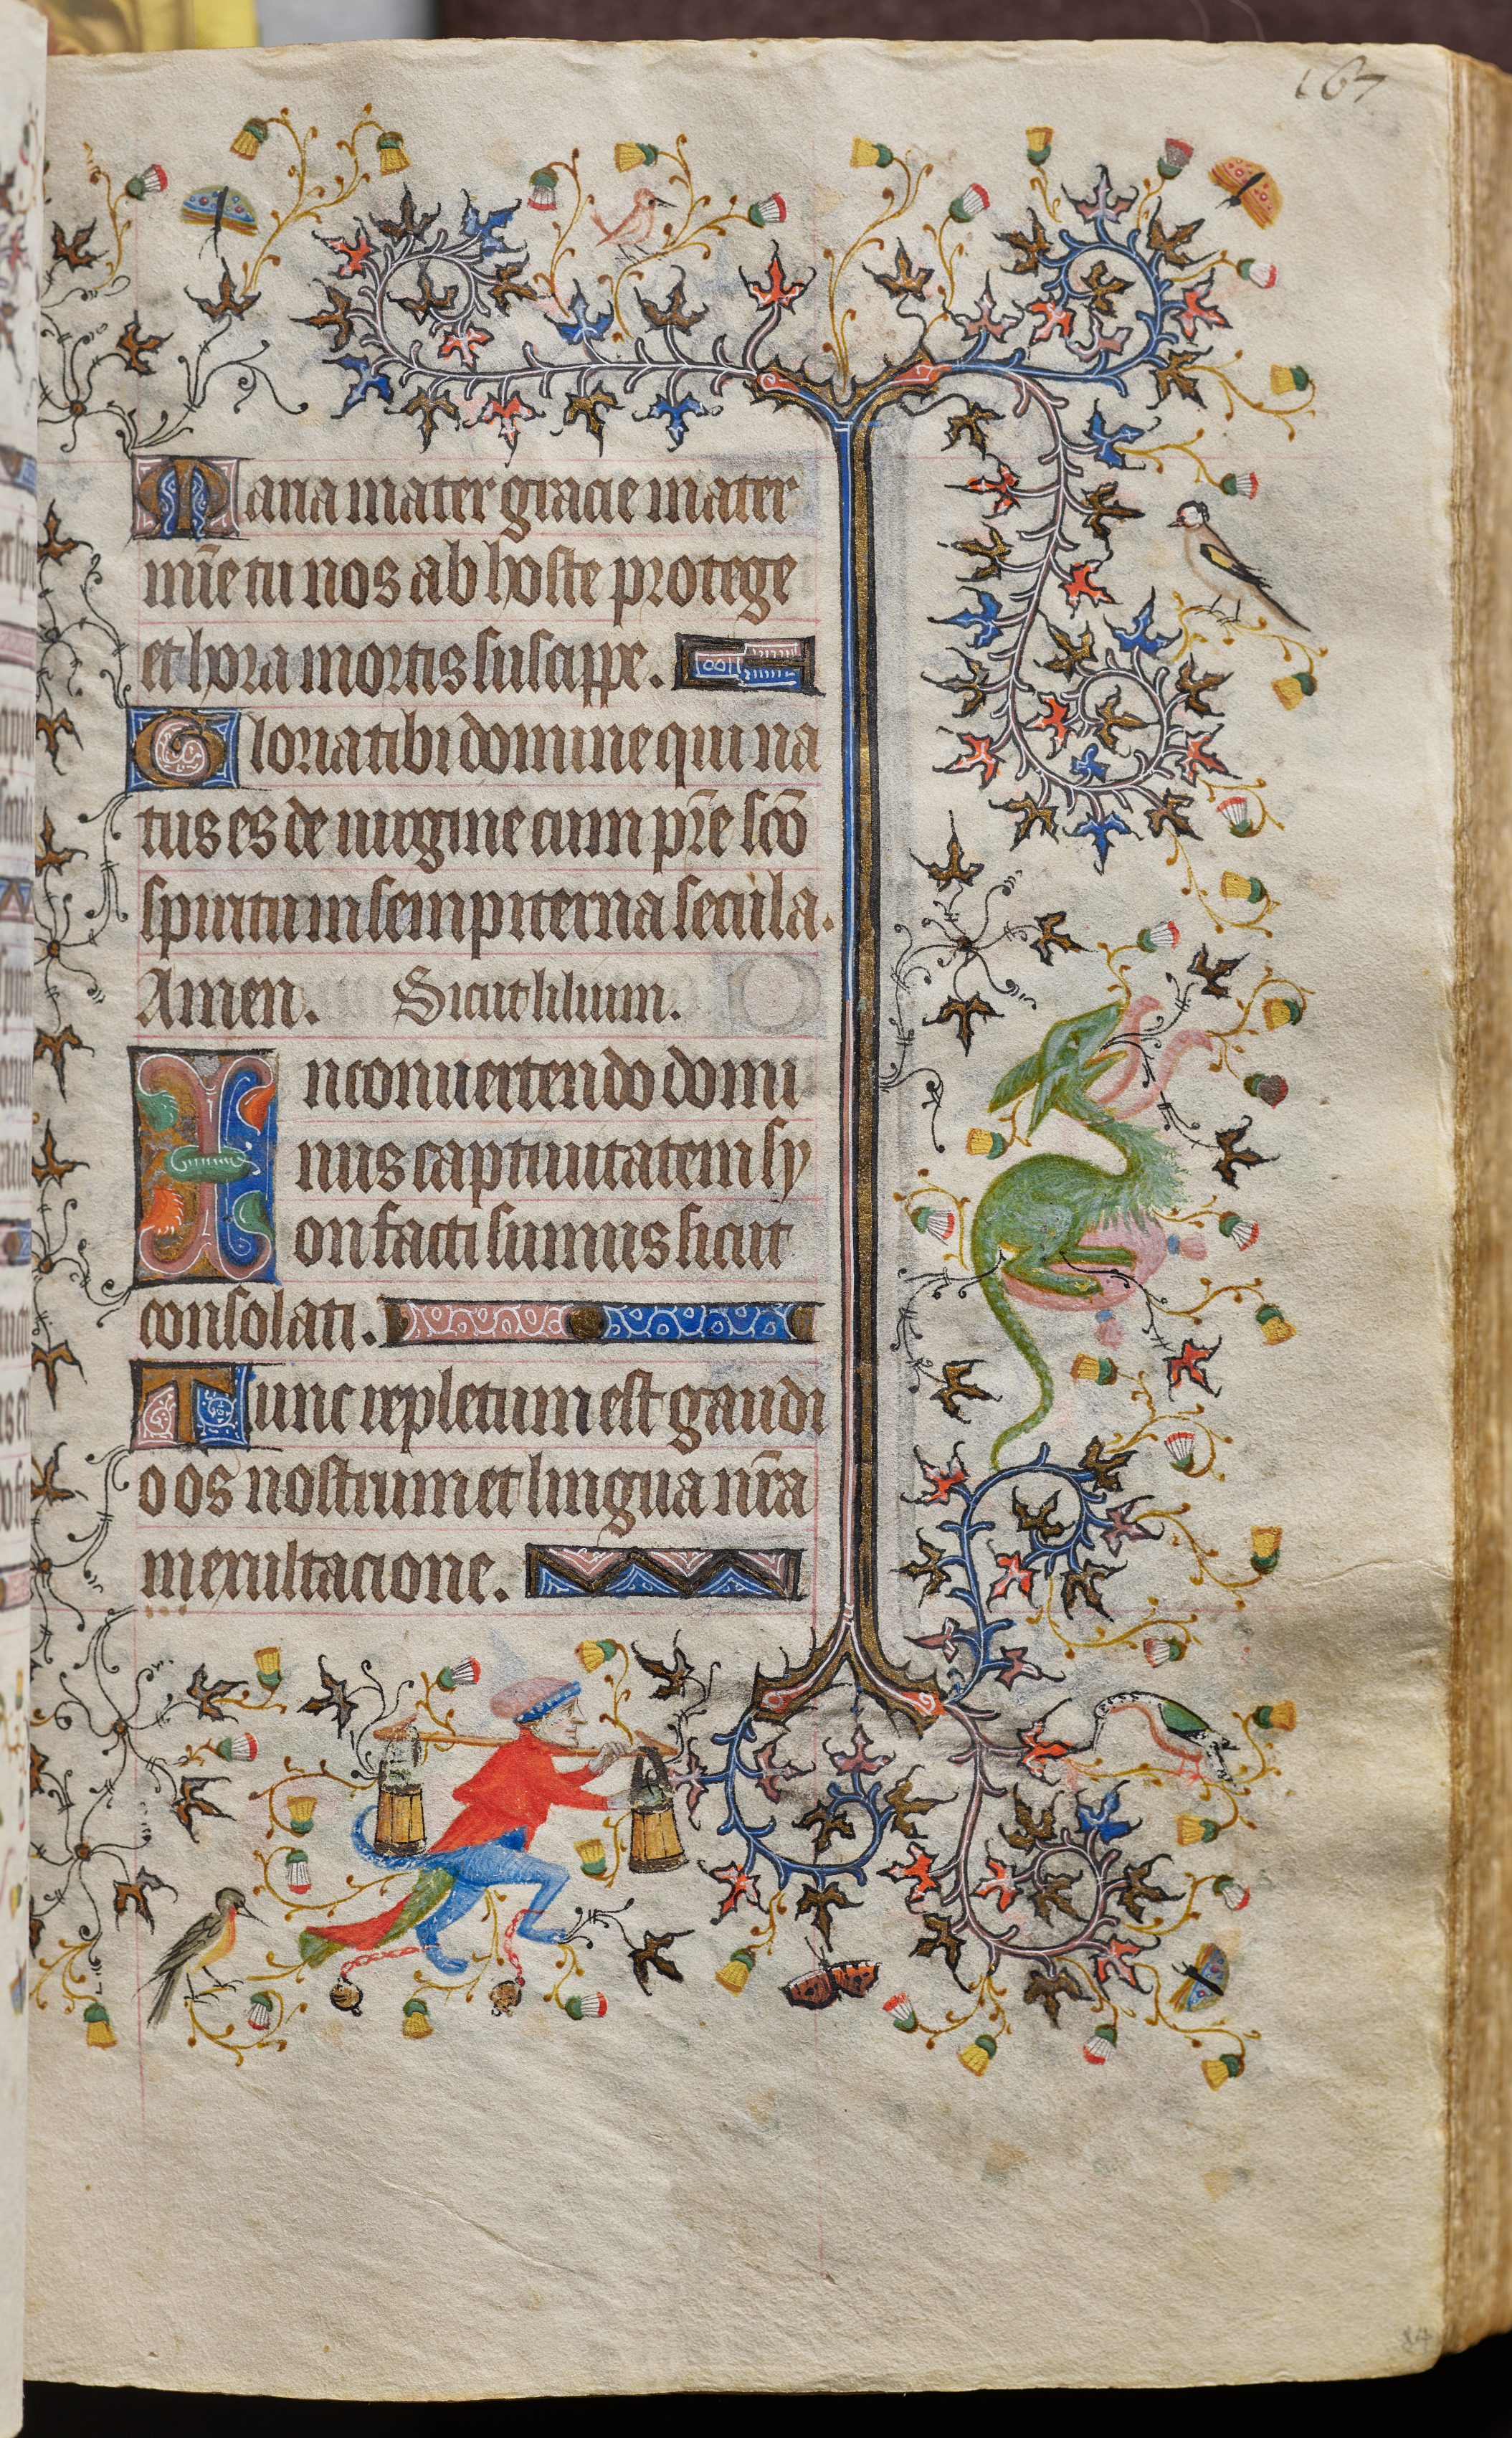 167
Maria mater gracie mater
mīe tu nos ab hoste protege
et hora mortis suscippe.
Gloria tibi domine qui na
tus es de uirgine cum pr̄e sc̄o
spiritu in sempiterna secula.
Amen. Sicut lilium.
In conuertendo domi
nus captiuitatem sy
on facti sumus sicut
consolati.
Tunc repletum est gaudi
o os nostrum et lingua nr̄a
in exultacione.
84